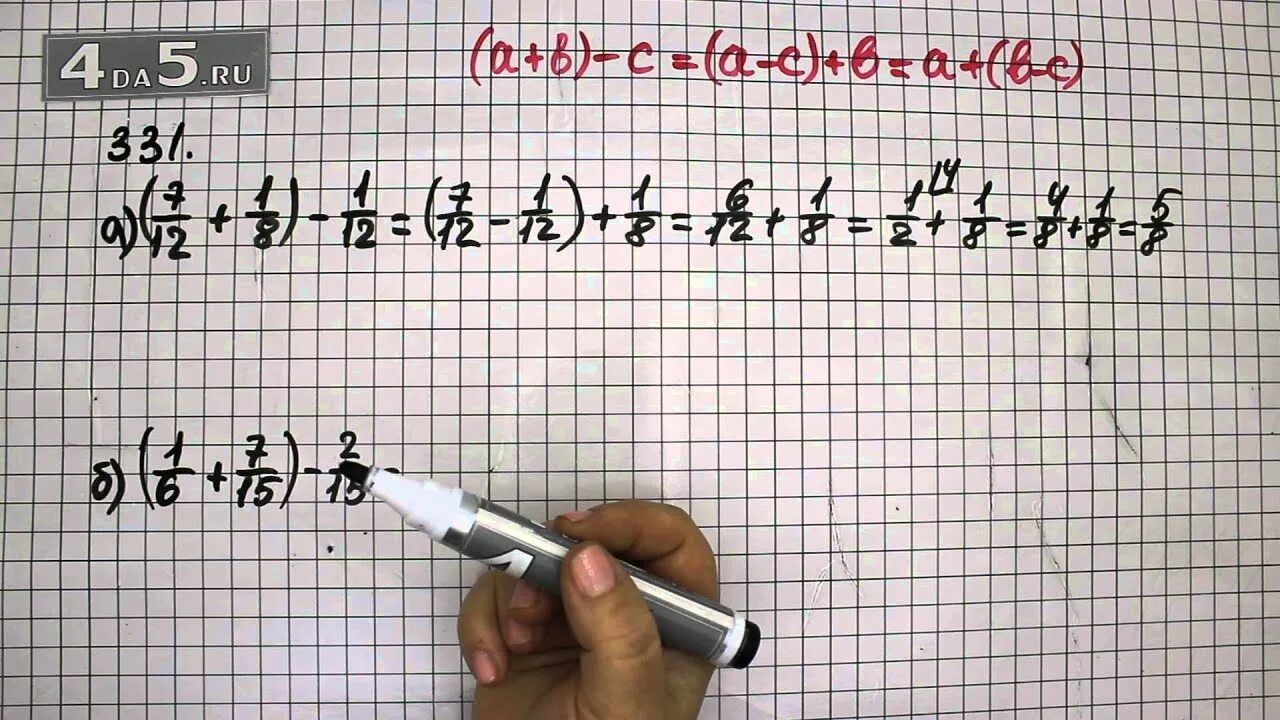 4DA5.RU
(a+b)-c=(a-c)+b=a+(b-c)
331.
а) (7/12 + 1/8) - 1/12 = (7/12 - 1/12) + 1/8 = 6/12 + 1/8 = 1/2 + 1/8 = 4/8 + 1/8 = 5/8
б) (1/6 + 7/15) - 2/15 =